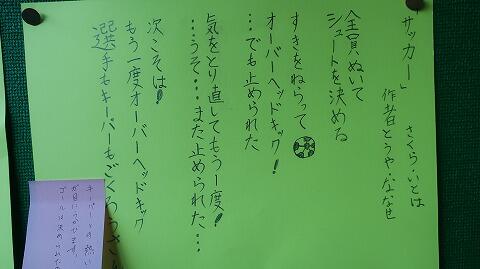 サッカー」
さくら・いとは
作者とうや・ななせ
全員ぬいて
シュートを決める
すきをねらって
オーバーヘッドキック!
…でも止められた
気をとり直してもう一度!
…うそ…また止められた…
次こそは!
もう一度オーバーヘッドキック
選手もキーパーもごくろうさん
キーパーとの熱い
が目にうかびます。
ゴールは決められたの